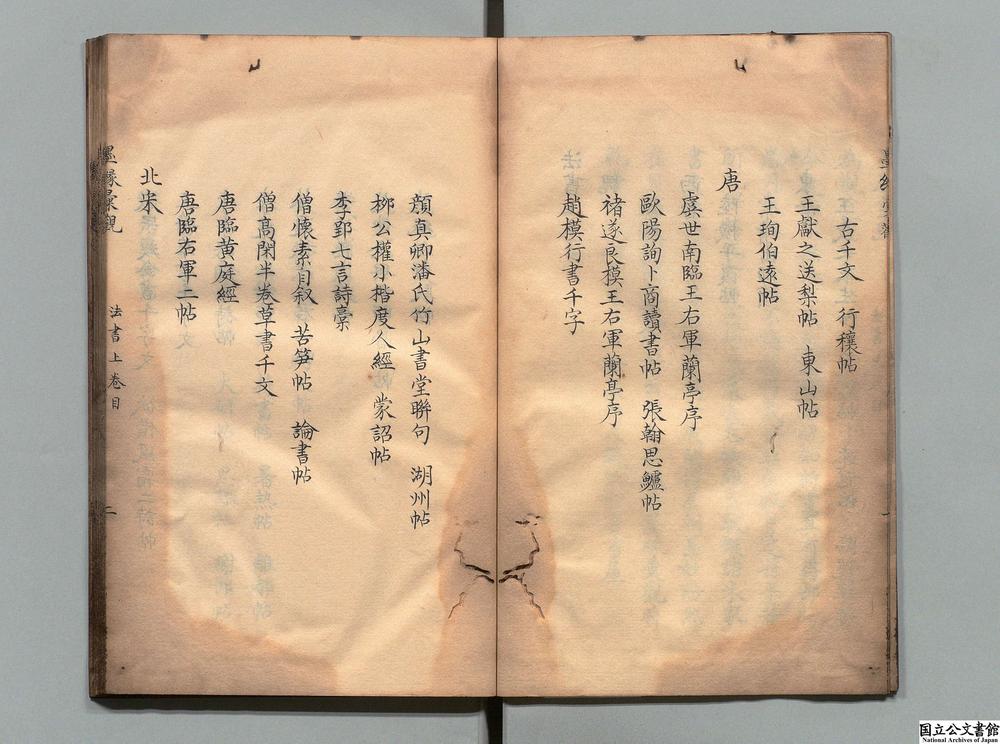 古千文　行穰帖
王獻之送梨帖　東山帖
王珣伯遠帖
唐
虞世南臨王右軍蘭亭序
歐陽詢卜商讀書帖　張翰思鱸帖
褚遂良模王右軍蘭亭序
趙模行書千字
顏真卿潘氏竹山書堂聯句　湖州帖
柳公權小揩度人經　蒙詔帖
李郢七言詩藁
僧懷素自叙　苦笋帖　論書帖
僧高閑半卷草書千文
唐臨黃庭經
唐臨右軍二帖
北宋
墨緣彙觀　法書上卷目　二
国立公文書館
National Archives of Japan